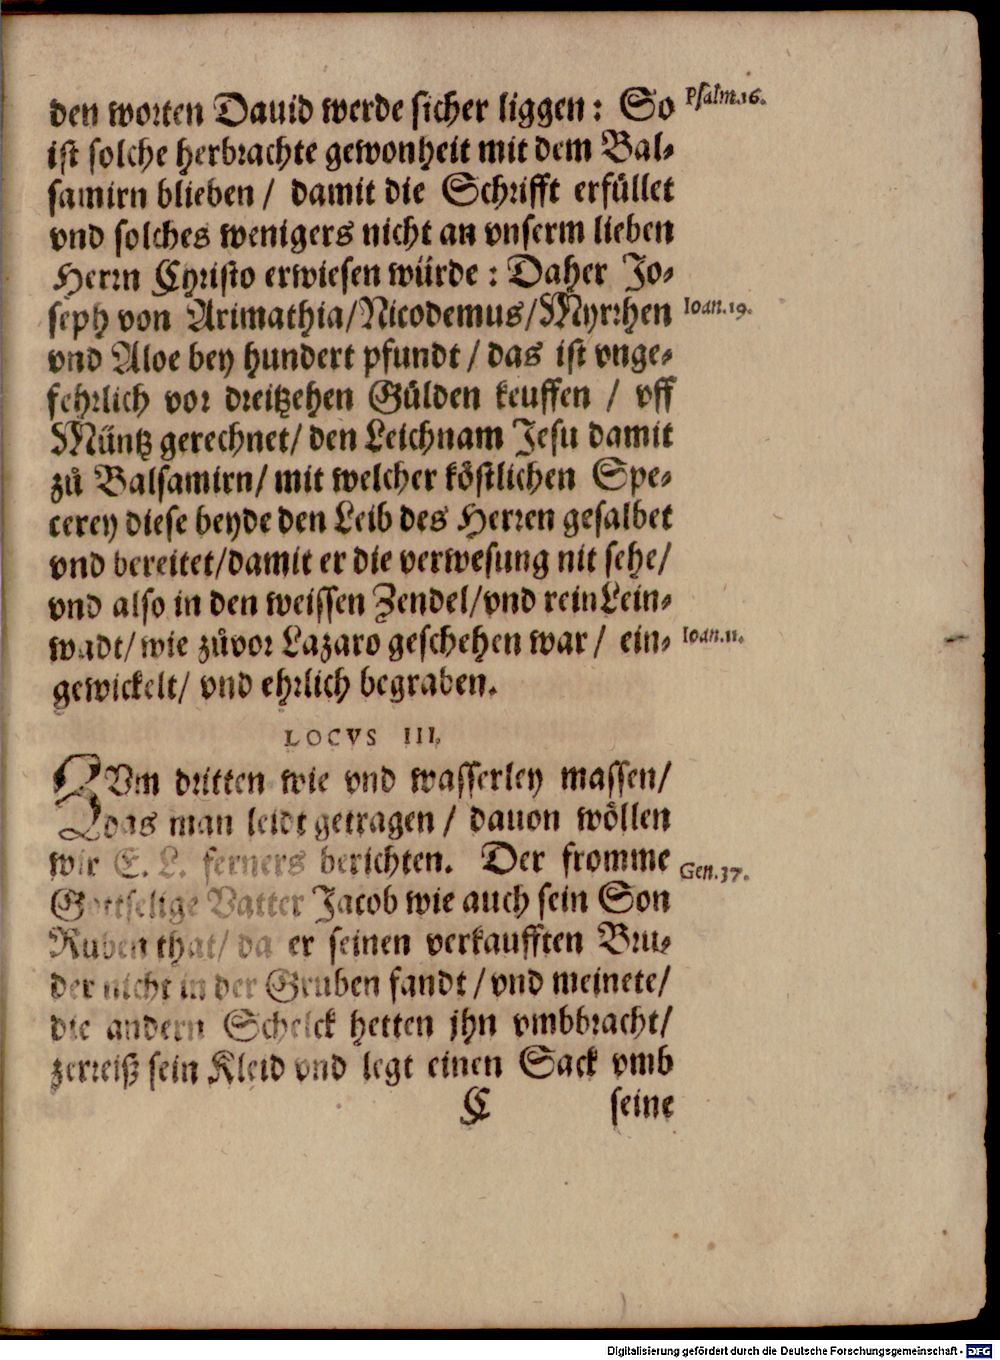 den worten Dauid werde sicher liggen: So
Psalm.16.
ist solche herbrachte gewonheit mit dem Bal⸗
samirn blieben / damit die Schrifft erfüllet
vnd solches wenigers nicht an vnserm lieben
Herrn Christo erwiesen würde: Daher Jo⸗
seph von Arimathia/Nicodemus/Myrrhen
Ioan.19.
vnd Aloe bey hundert pfundt / das ist vnge⸗
fehrlich vor dreitzehen Gülden keuffen / vff
Müntz gerechnet/ den Leichnam Jesu damit
zů Balsamirn/ mit welcher köstlichen Spe⸗
cerey diese beyde den Leib des Herren gesalbet
vnd bereitet/damit er die verwesung nit sehe/
vnd also in den weissen Zendel/vnd rein Lein⸗
wadt/ wie zůvor Lazaro geschehen war / ein⸗
Ioan.11.
gewickelt/ vnd ehrlich begraben.
LOCVS III.
ZVm dritten wie vnd wasserley massen/
das man leidt getragen / dauon wöllen
wir E. L. ferners berichten. Der fromme
Gen.37.
Gottselige Vatter Jacob wie auch sein Son
Ruben that/ da er seinen verkaufften Bru⸗
der nicht in der Gruben fandt / vnd meinete/
die andern Schelck hetten jhn vmbbracht/
zerreiß sein Kleid vnd legt einen Sack vmb
C seine
Digitalisierung gefördert durch die Deutsche Forschungsgemeinschaft - DFG